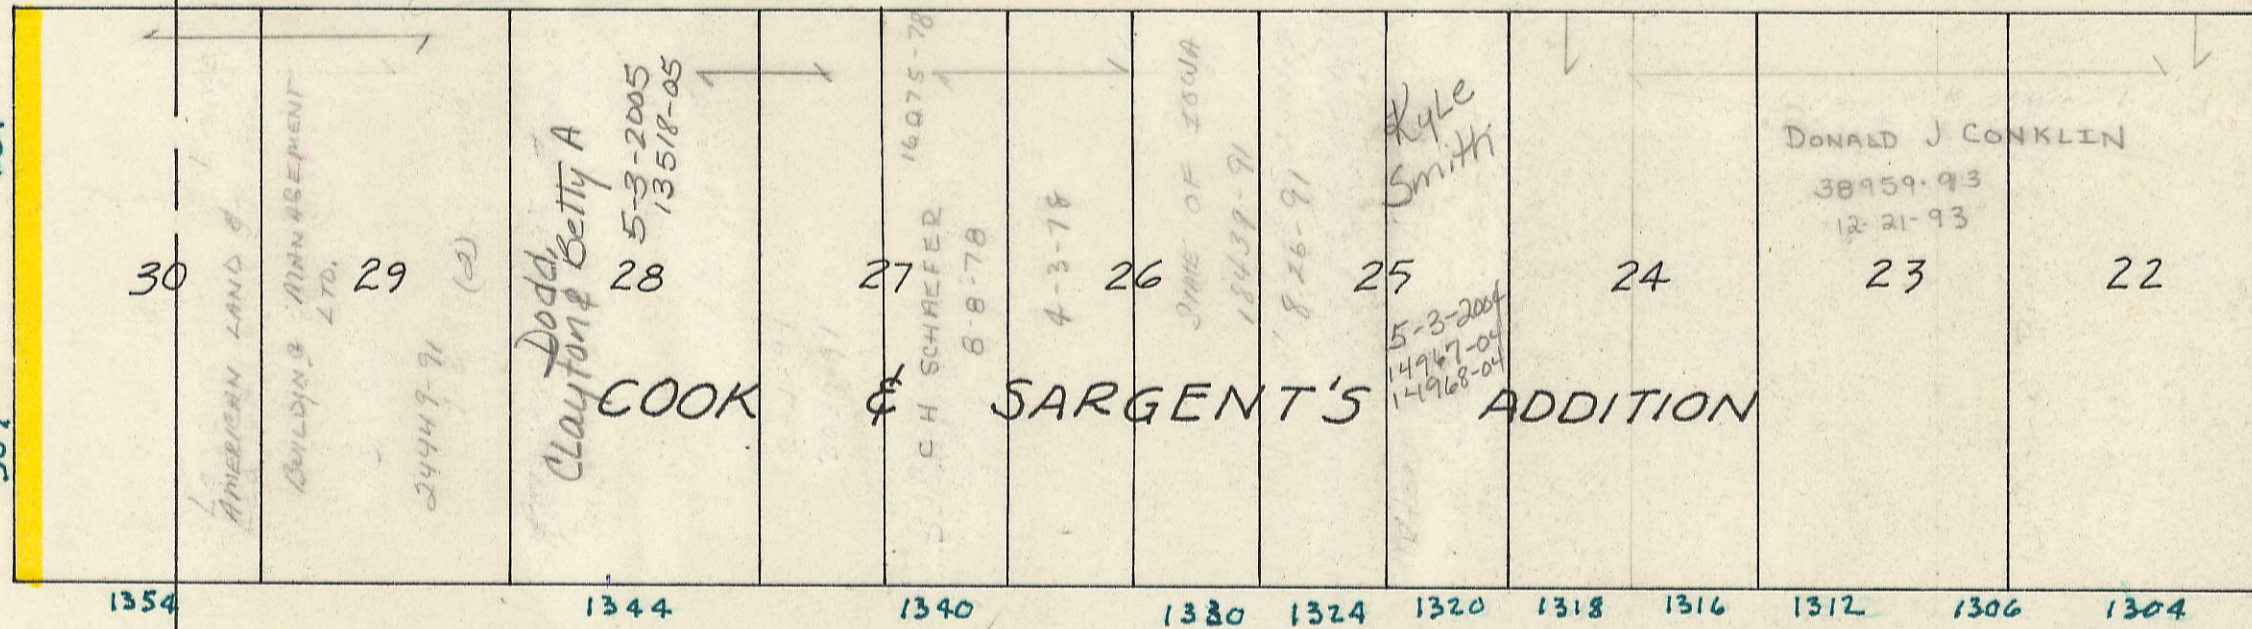 AMERICAN LAND &
BUILDING MANAGEMENT
LTD.
24449-91
(2)
Dodd,
Clayton & Betty A
5-3-2005
13518-05
C H SCHAEFER 16275-78
8-8-78
4-3-78
STATE OF IOWA
18439-91
8-26-91
Kyle
Smith
5-3-2004
14967-04
14968-04
DONALD J CONKLIN
38959-93
12-21-93
30 29 28 27 26 25 24 23 22
COOK & SARGENT'S ADDITION
1354 1344 1340 1330 1324 1320 1318 1316 1312 1306 1304